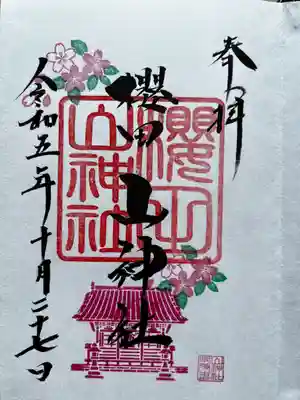 奉拝
櫻山神社
櫻山神社
令和五年十月二十七日